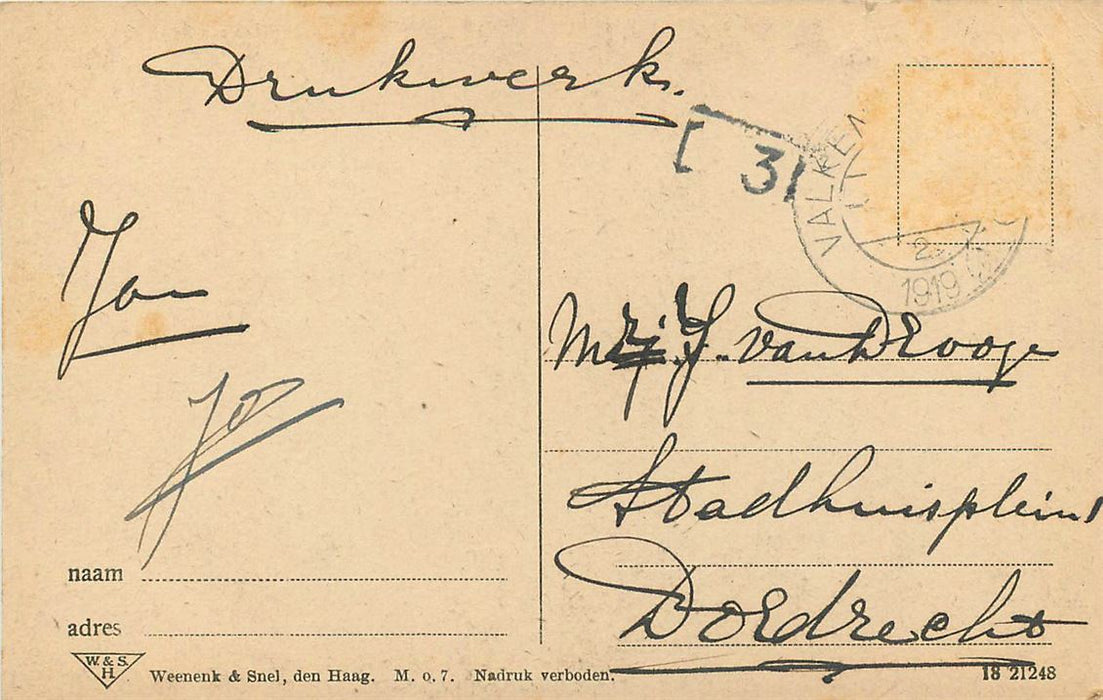 Drukwerk.
[ 31
VALKEN
2. 
1919
Jan
Jo
J. van Drooge
Stadhuisplein 1
Dordrecht
naam
adres
W. & S.
H.
Weenenk & Snel, den Haag. M. o. 7. Nadruk verboden.
18 21248